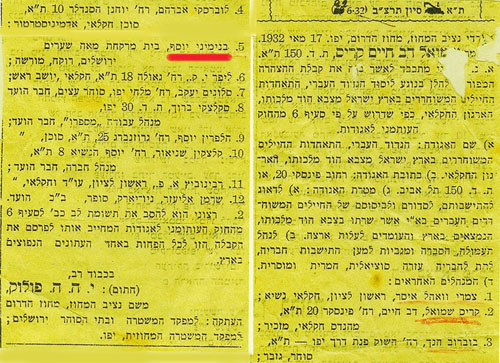 ת"א סיון תרצ"ב 6.32
רדי נציב המחוז, מחוז הדרום, יפו. 17 מאי 1932.
שמואל דב חיים קריס, ת. ד. 150 ת"א.
מתכבד לאשר בזה את קבלת ההצהרה
בנוגע ליסוד הגדוד העברי, התאחדות
החיילים המשוחררים בארץ ישראל מצבא הוד מלכותו,
הארגון החקלאי, כפי שדרוש על פי סעיף 6 מחוק
העותמני לאגודות.
א) שם האגודה: הגדוד העברי, התאחדות החיילים
המשוחררים בארץ ישראל מצבא הוד מלכותו, האר־
גון החקלאי. ב) כתובת האגודה: רחוב פינסקר 20, או
ת. ד. 150 תל אביב. ג) מטרת האגודה: א) לדאוג
להתישבותם, לסדורם ולביסוסם של החיילים המשוח־
ררים העברים בא"י אשר שרתו בצבא הוד מלכותו,
הנמצאים בארץ והעומדים לעלות ארצה. ב) לנהל
תעמולה, הסברה ומגביות למען התישבות חבריה,
לתת לחבריה עזרה סוציאלית, חמרית ומוסרית.
ד) המנהלים האחראים:
1. צמרי וואהל איסר, ראשון לציון, חקלאי נשיא;
2. קריס שמואל, דב חיים, רח' פינסקר 20 ת"א,
מהנדס חקלאי, מזכיר;
3. בוברוב הנך, רח' קרית ספר 9, דרך פתח תקוה יפו,
סוחר, גזבר;
4. לוברסקי אברהם, רח' יוחנן הסנדלר 10 ת"א,
סוכן חקלאי, אדמיניסטרטור;
5. בנימיני יוסף, בית מרקחת מאה שערים
ירושלים, רוקח, מורשה;
6. ליפר י. פ., רח' גאולה 18 ת"א, חקלאי, יושב ראש;
7. סלונים יעקב, רח' מלחי יפו, סוחר עצים, חבר הועד
8. סקלצקי ברוך, ת. ד. 30 יפו,
מנהל עבודה "מספרו", חבר הועד;
9. הלפרין יוסף, רח' גרוזנברג 25, ת"א, סוכן, "
10. קלצקין שניאור, רח' יוסף הנשיא 8 ת"א,
מנהל חברה, חבר הועד;
11. רבינוביץ א. פ., ראשון לציון, עו"ד וחקלאי, "
12. שדמן אליעזר, ניויארק, סופר, ב"כ הועד.
2. רצוני הוא להסב את תשומת לב כב' לסעיף 6
מחוק העותומני לאגודות המחייב אותו לפרסם את
הקבלה הזו לכל הפחות באחד העתונים הנפוצים
בארץ.
בכבוד רב,
(חתום): י. ה. ה. פולוק,
משם נציב המחוז, מחוז הדרום
העתקה: למפקד המשטרה ובתי הסוהר ירושלים;
למפקד המשטרה המחוזית, יפו.